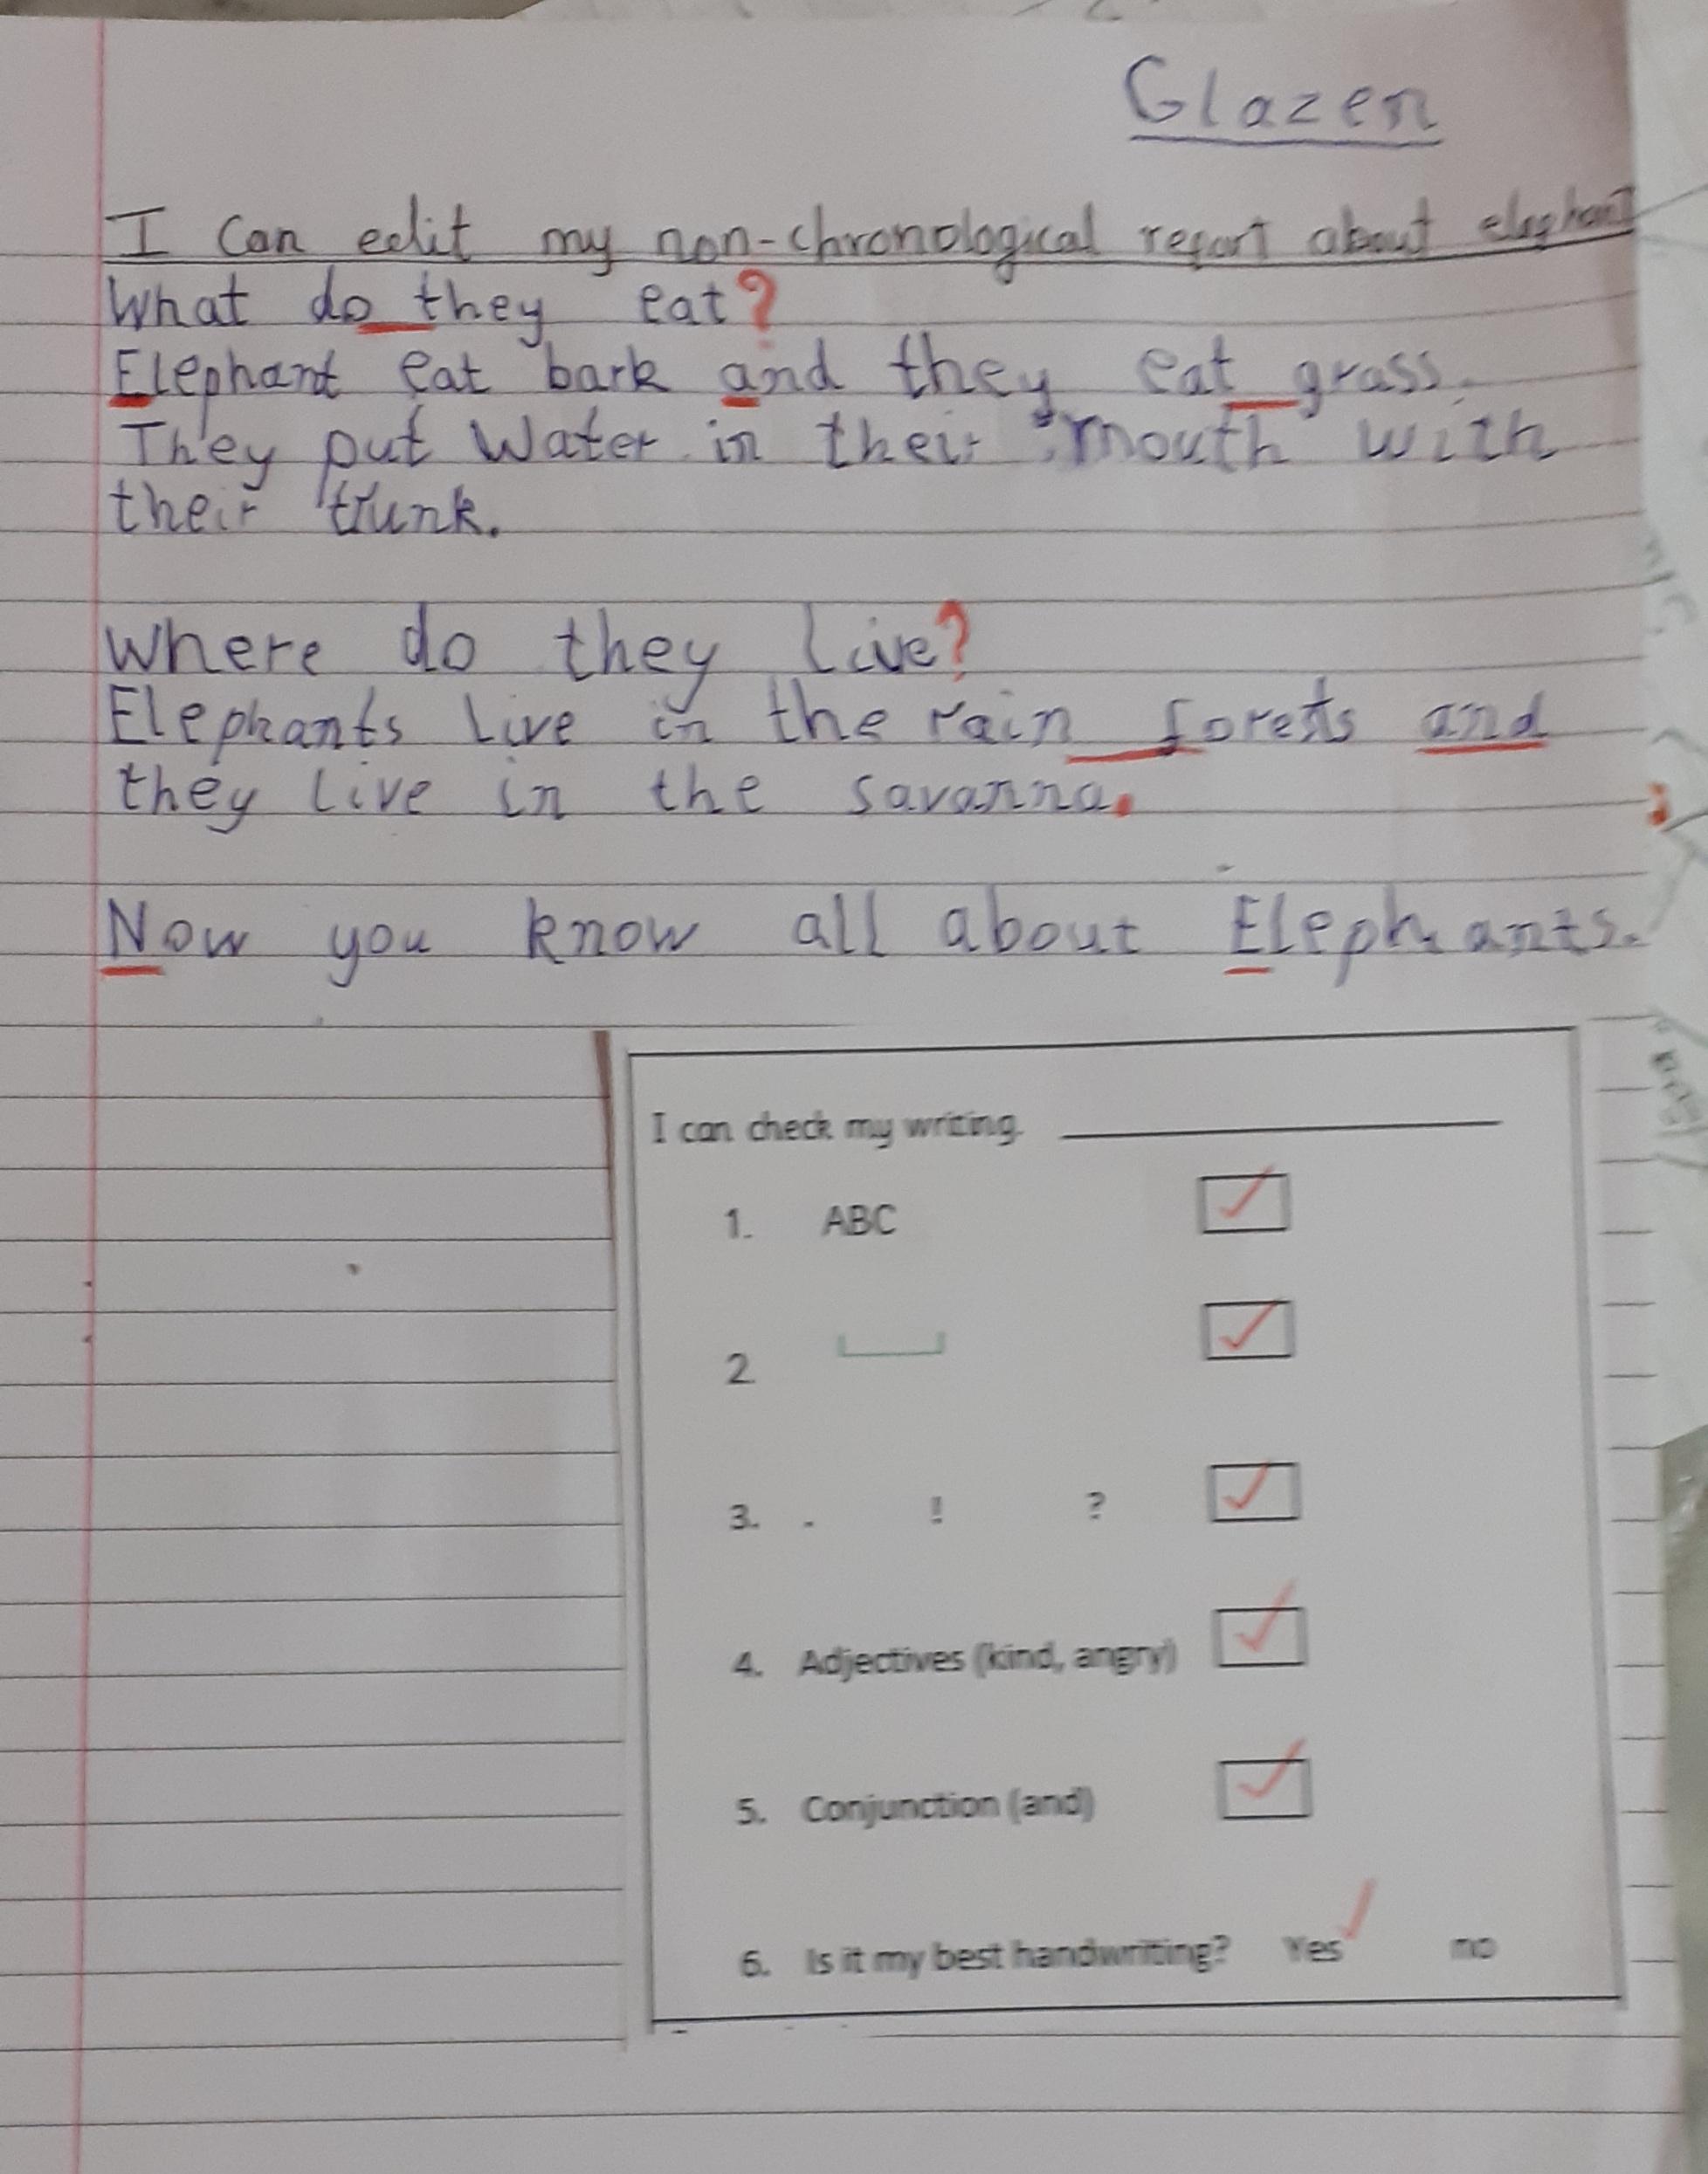 Glazen
I can edit my non-chronological report about elephant
What do they eat?
Elephant eat bark and they eat grass.
They put water in their mouth with
their trunk.
Where do they live?
Elephants live in the rain forests and
they live in the savanna.
Now you know all about Elephants.
I can check my writing.
1. ABC ✓
2 ✓
3. . ! ? ✓
4. Adjectives (kind, angry) ✓
5. Conjunction (and) ✓
6. Is it my best handwriting? Yes ✓ no